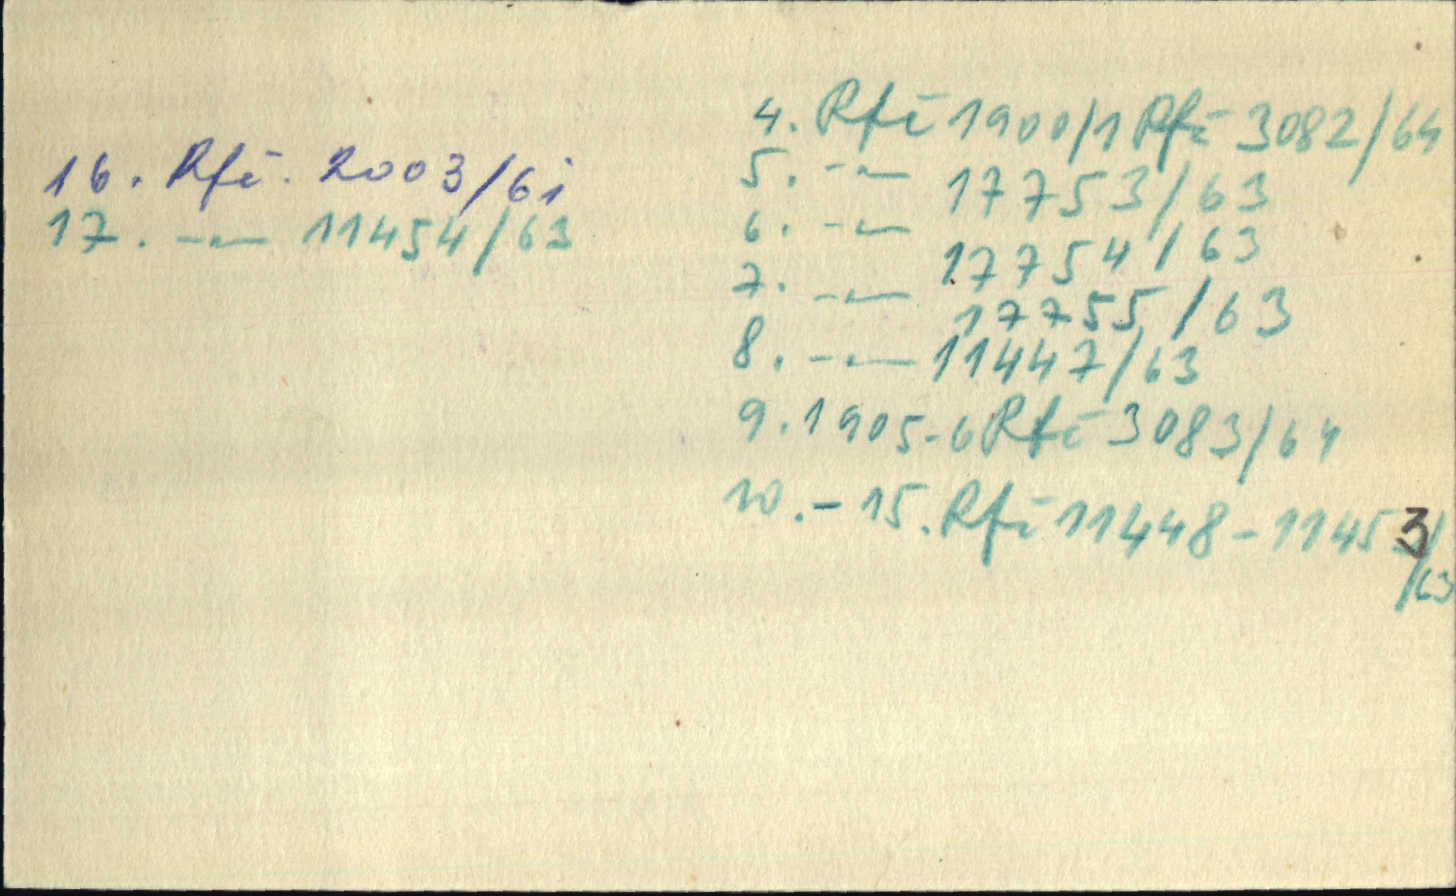 16. Rfē. 2003/61
17. -〃- 11454/63
4. Rfē 1900/1 Rfē 3082/64
5. -〃- 17753/63
6. -〃- 17754/63
7. -〃- 17755/63
8. -〃- 11447/63
9. 1905-6 Rfē 3083/64
10.-15. Rfē 11448-11453/
/63